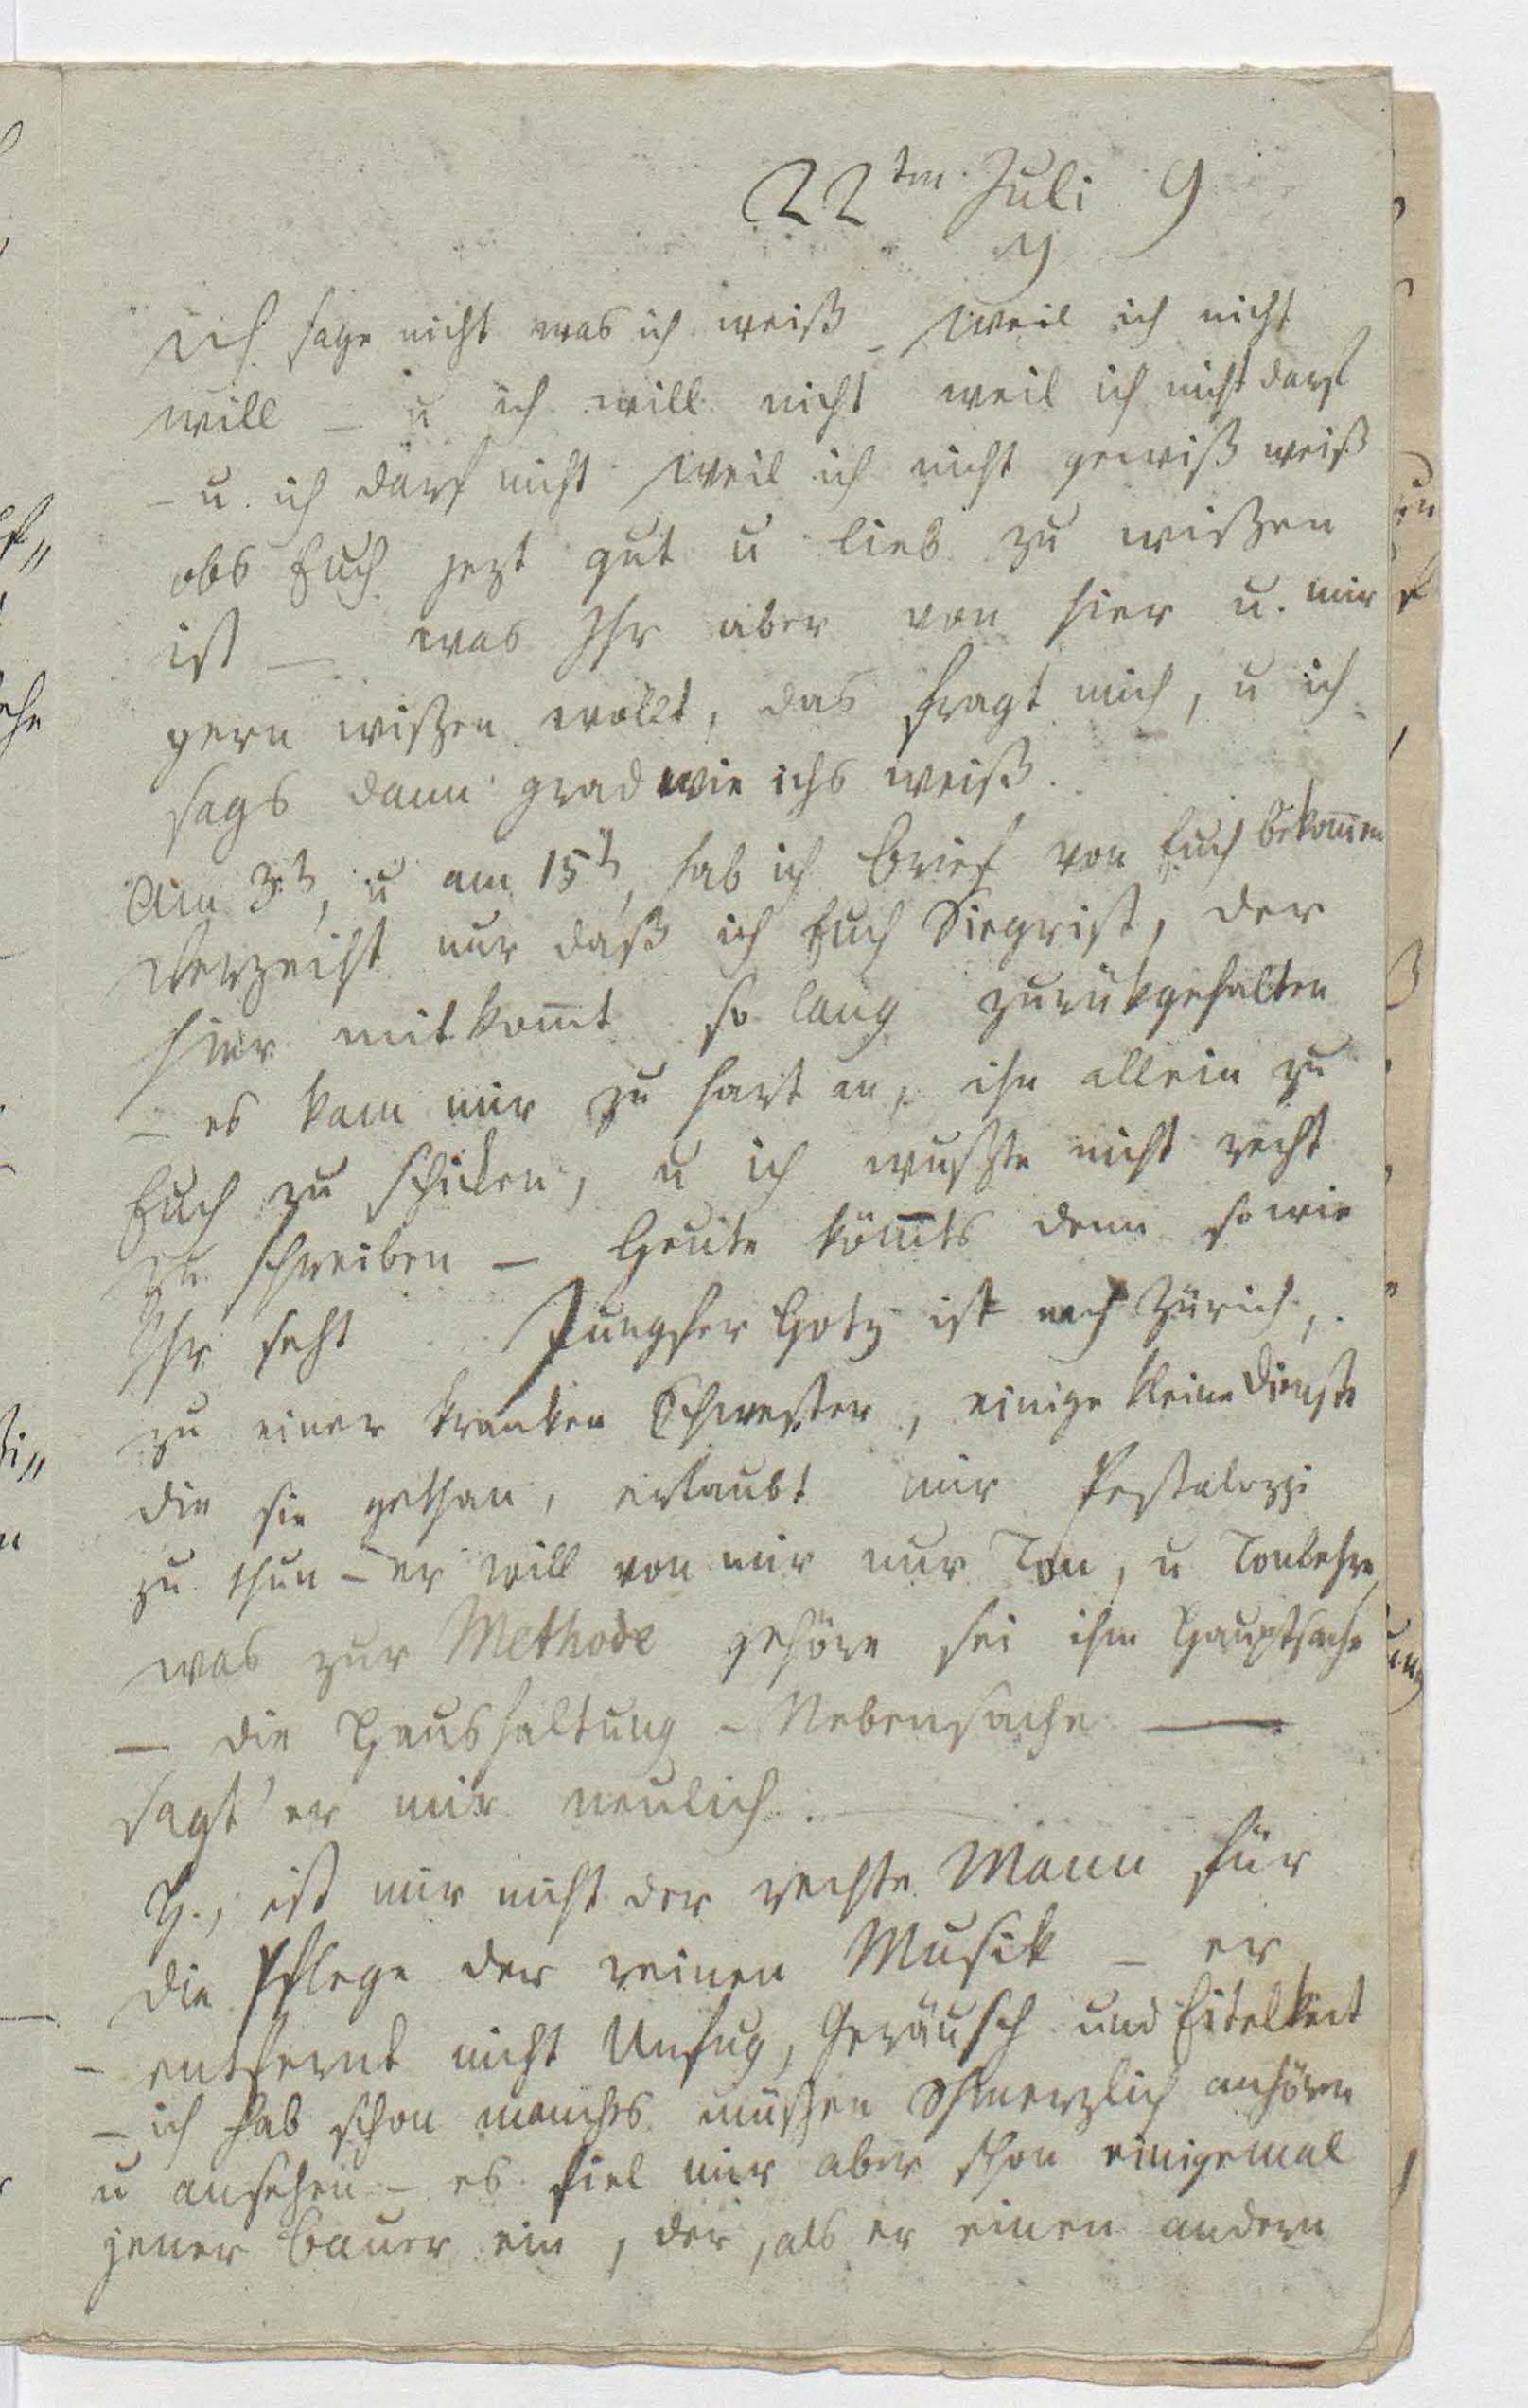 22ten Juli 9
Y
Ich sage nicht was ich weiß – weil ich nicht
will – u ich will nicht weil ich nicht darf
– u. ich darf nicht weil ich nicht gewiß weiß
obs Euch jezt gut u lieb zu wißen
ist – was Ihr aber von hier u. mir
gern wißen wollt, das fragt mich, u ich
sags dann grad wie ichs weiß.
Am 3t, u am 15t, hab ich brief von Euch bekom̄en
Verzeiht nur daß ich Euch Siegrist, der
hier mitkom̄t so lang zurükgehalten
– es kam mir zu hart an, ihn allein zu
Euch zu schicken, u ich wußte nicht recht
zu schreiben – Heute köm̄ts denn so wie
Ihr seht Jungfer Hotz ist nach Zürich,
zu einer kranken Schwester, einige kleine Dienste
die sie gethan, erlaubt mir Pestalozzi
zu thun – er will von mir nur Ton, u Tonlehre,
was zur Methode gehöre sei ihm Hauptsache
– die Haushaltung – Nebensache –
sagt' er mir neulich.
H., ist mir nicht der rechte Mann für
die Pflege der reinen Musik – er
– entfernt nicht Unfug, Geräusch und Eitelkeit
– ich hab schon manches müßen schmerzlich anhören
u ansehen – es fiel mir aber schon einigemal
jener Bauer ein, der, als er einen andern